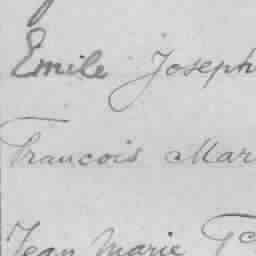 Emile Joseph
Francois Mar
Jean Marie